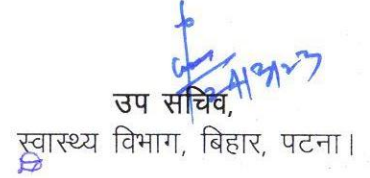 24/3/23
उप सचिव,
स्वास्थ्य विभाग, बिहार, पटना।